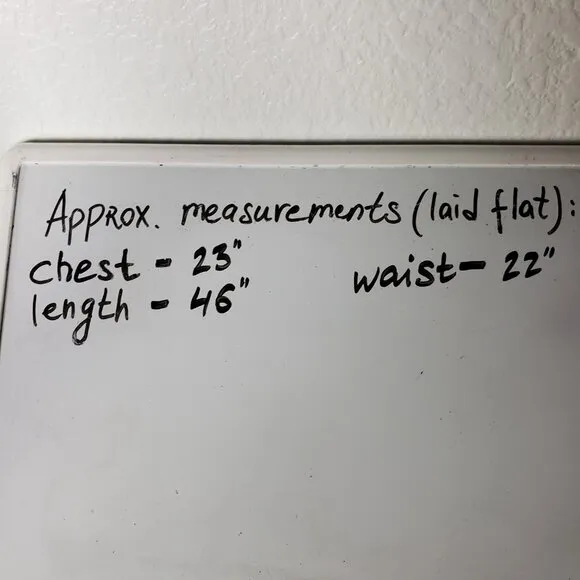 Approx. measurements (laid flat):
chest - 23" waist - 22"
length - 46"